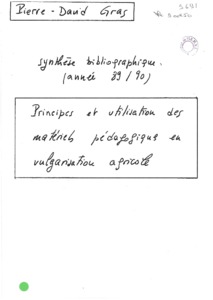 Pierre - David Gras
synthèse bibliographique.
(année 89/90)
Principes et utilisation des
matériels pédagogique en
vulgarisation agricole